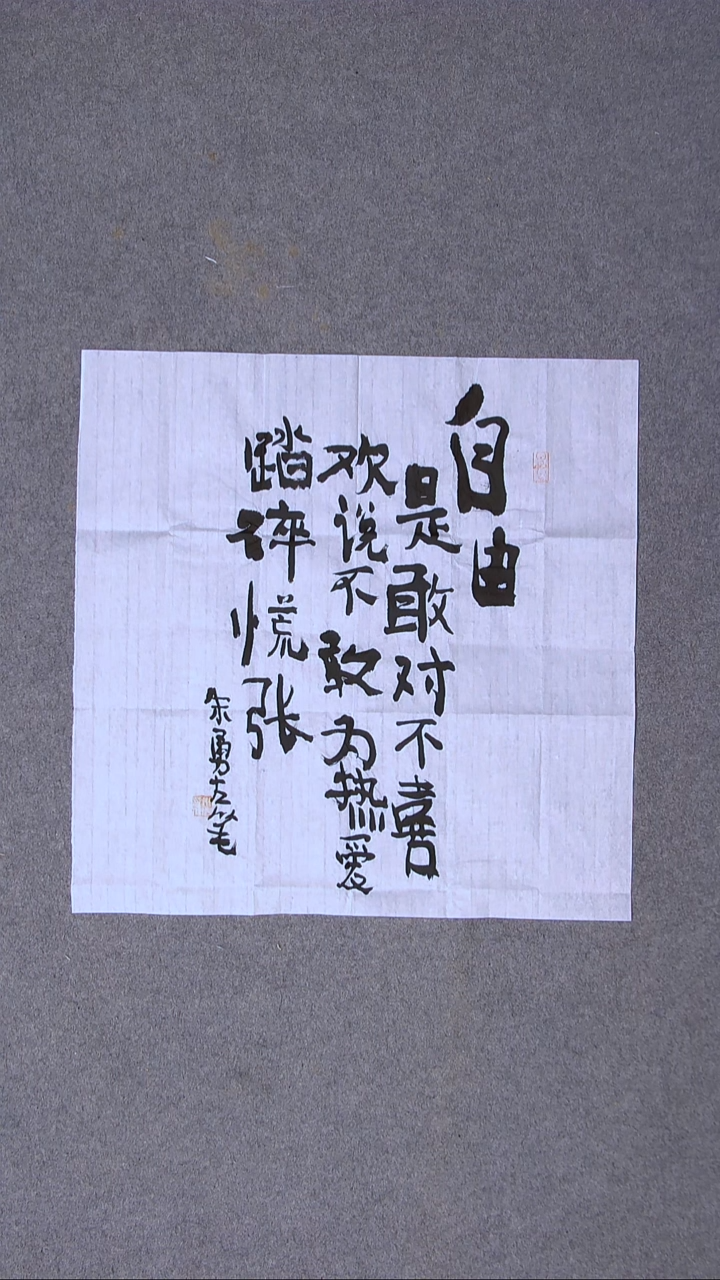 自由
是敢对不喜
欢说不敢为热爱
踏碎慌张
朱勇左笔